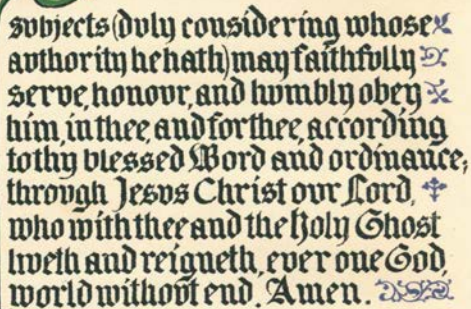 svbjects (dvly considering whose
avthority he hath) may faithfvlly
serve, honovr, and hvmbly obey
him, in thee, and for thee, according
to thy blessed Word and ordinance,
throvgh Jesvs Christ ovr Lord,
who with thee and the Holy Ghost
liveth and reigneth, ever one God,
world withovt end. Amen.